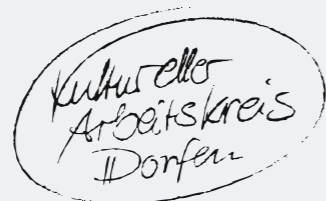 Kultureller
Arbeitskreis
Dorfen